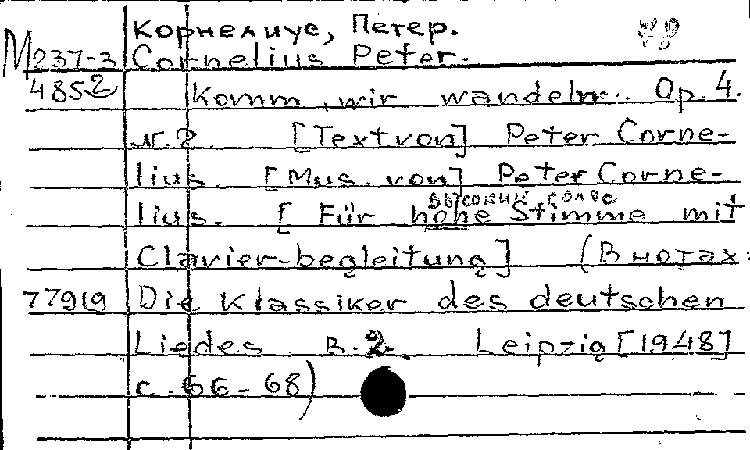 Корнелиус, Петер.
М237-3 Cornelius Peter.
4852 Komm, wir wandeln. Op. 4.
N. 2. [Text von] Peter Corne-
lius. [Mus. von] Peter Corne-
высокий голос
lius. [Für hohe Stimme mit
Clavier-begleitung] (В нотах:
77919 Die Klassiker des deutschen
Liedes B. 2. Leipzig [1948]
с. 66-68)